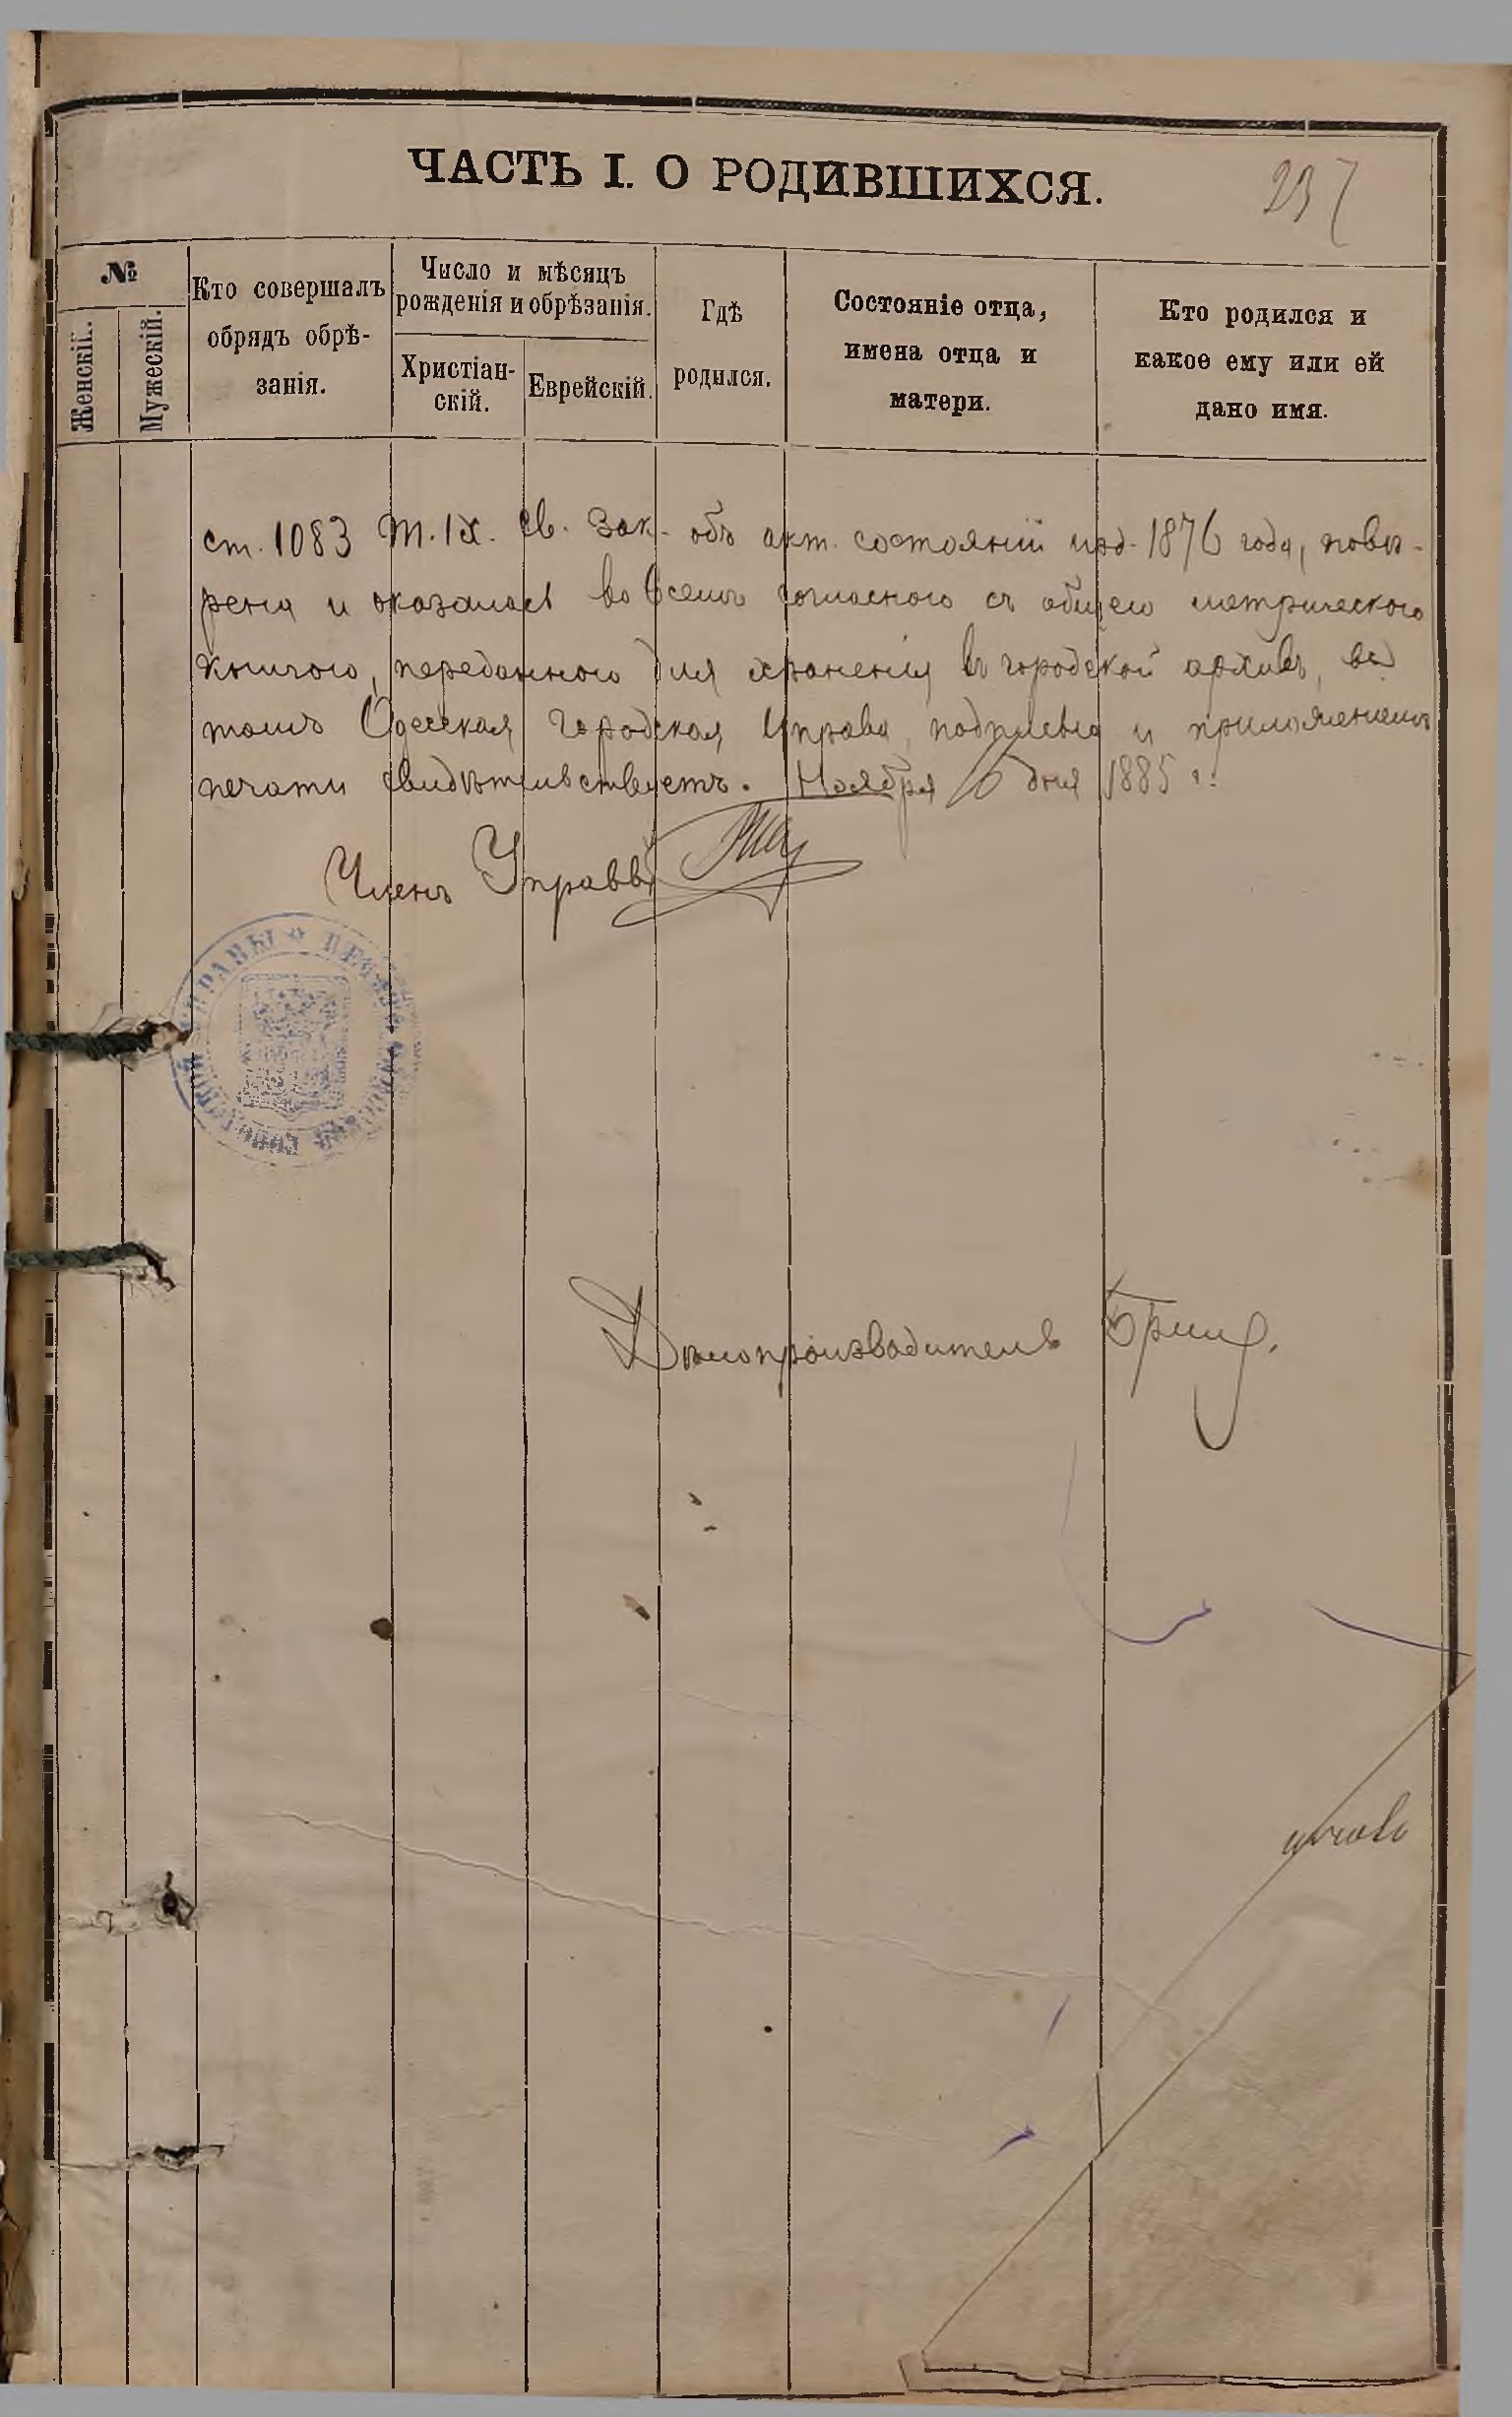 ЧАСТЬ I. О РОДИВШИХСЯ.
237
№
Женскій.
Мужескій.
Кто совершалъ
обрядъ обрѣ-
занія.
Число и мѣсяцъ
рожденія и обрѣзанія.
Христіан-
скій.
Еврейскій.
Гдѣ
родился.
Состояніе отца,
имена отца и
матери.
Кто родился и
какое ему или ей
дано имя.
ст. 1083 Т. IX. Св. Зак. объ акт. состояній изд. 1876 года, повѣ-
рена и оказалась во всемъ согласною съ общею метрическою
книгою, переданною для храненія въ городской архивъ, въ
томъ Одесская Городская Управа, подписью и приложеніемъ
печати свидѣтельствуетъ. Ноября дня 1885 г.
Членъ Управы
УПРАВЫ ☆
Дѣлопроизводитель